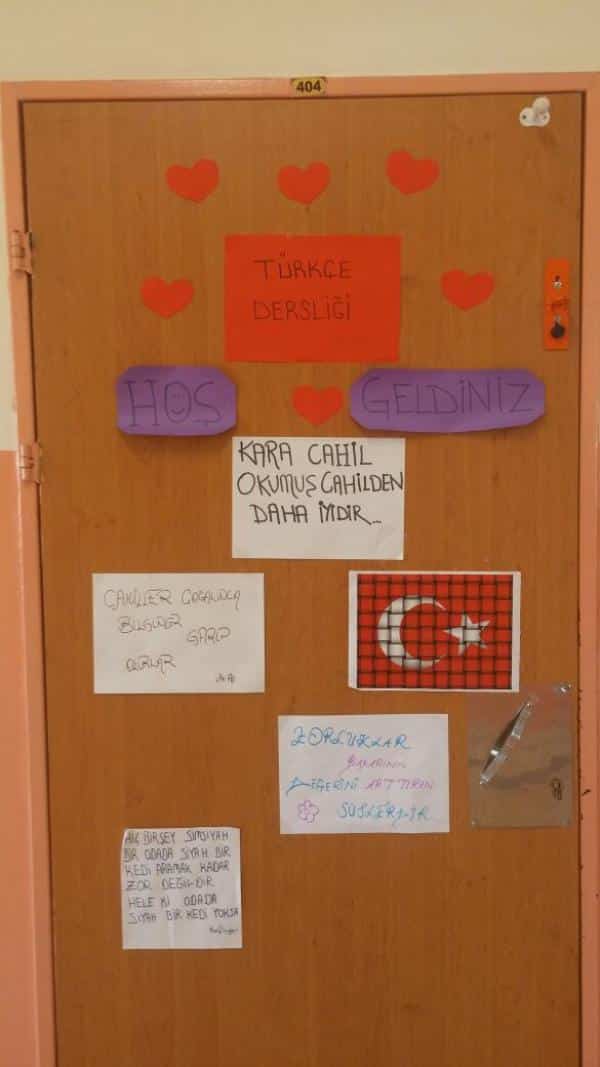 404
TÜRKÇE
DERSLİĞİ
HOŞ GELDİNİZ
KARA CAHİL
OKUMUŞ CAHİLDEN
DAHA İYİDİR...
CAHİLLER ÇOĞALINCA
BİLGİNLER
GARİP
OLURLAR
ZORLUKLAR
BAŞARININ
DEĞERİNİ ARTTIRAN
SÜSLERDİR
HİÇ BİRŞEY SİMSİYAH
BİR ODADA SİYAH BİR
KEDİ ARAMAK KADAR
ZOR DEĞİLDİR
HELE Kİ ODADA
SİYAH BİR KEDİ YOKSA